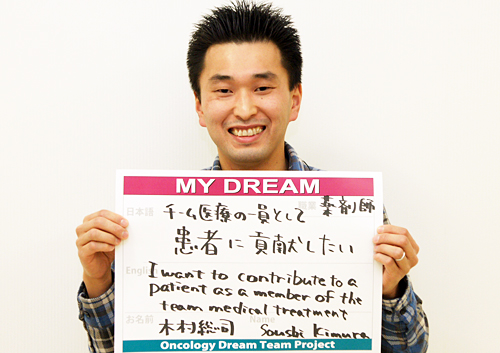 MY DREAM
日本語 チーム医療の一員として 職業 薬剤師
患者に貢献したい
English I want to contribute to a
patient as a member of the
team medical treatment
お名前 木村総司 Name Soushi Kimura
Oncology Dream Team Project